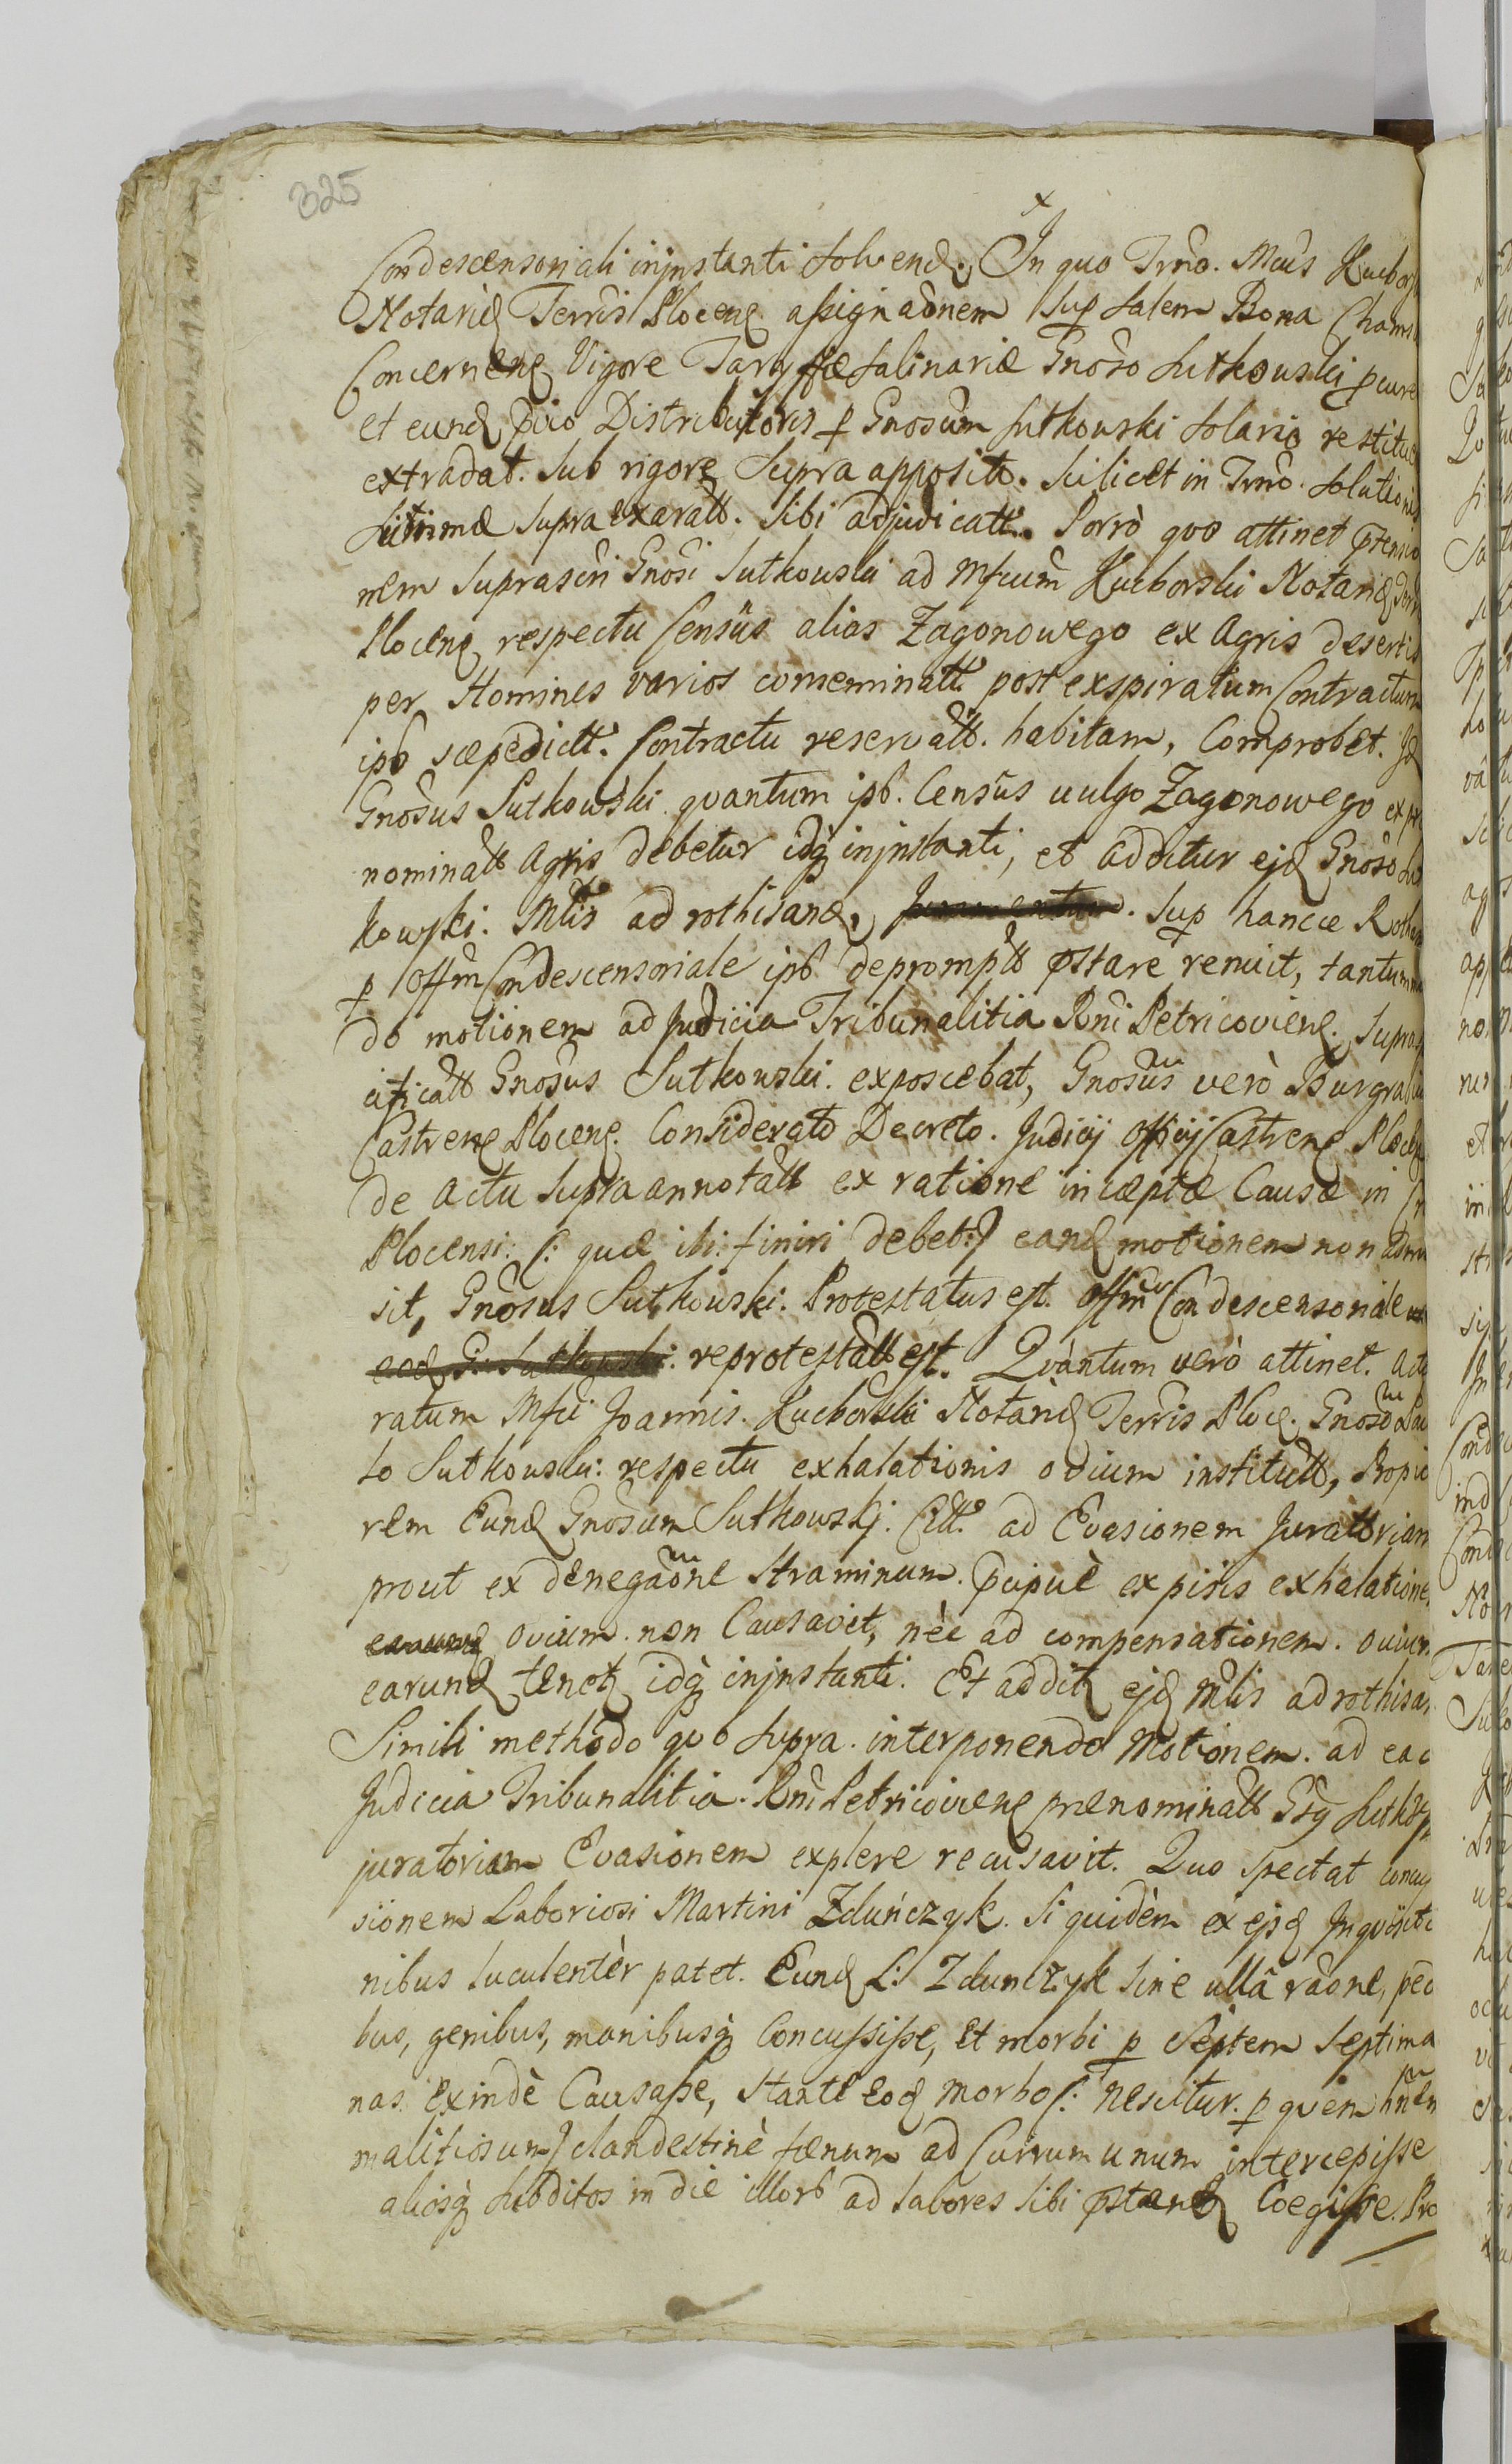 325
Condescensoriali injnstanti solvend. In quo Trno. Mcus Kucbor
Notari9 Terris Plocen. assignaonem sup salem Bona Chams
Concernen Vigore Taryffæ salinariæ Gnoso Sutkowski
et eund Distributoris p Gnosum Sutkowski solario restitue
extradat. Sub rigore supra apposito. Scilicet in Trno. solutionis
supra exaratt. sibi adjudicatt. Porrò quo attinet ptensio
nem suprascri Gnosi Sutkowski ad Mfcum Kucborski Notari
Plocen respectu Censûs alias Zagonowego ex Agris desertis
per Homines varios conseminatt. post exspiratum Contractum
ipb sæpèdictt. Contractu reservatt. habitam, Comprobet. Id
Gnosus Sutkowski quantum ipb. Censûs vulgo Zagonowego ex pr
nominatt Agris debetur idq injnstanti, et additur ejd Gnoso Sut
kowski. Mlis ad rothisand, Juramentum. Sup hancce Rotham
p Offm Condescensoriale ipb depromptt pstare renuit, tantummo
do motionem ad Judicia Tribunalitia Rni Petricovien. Supras
cificatt Gnosus Sutkowski. exposcebat, Gnosus verò Burgrabi
Castren Plocen. Considerato Decreto. Judicij Officij Castren Plocen
de actu supra annotatt ex ratione incæptæ Causæ in
Plocensi. (: quæ ibi finiri debet:) eand motionem non admi
sit, Gnosus Sutkowski. Protestatus est. Offm Condescensoriale
eod G: Sutkowski. reprotestatt est. Qvàntum verò attinet. Acto
ratum Mfci Joannis. Kucborski Notari Terris Ploc. Gnoso
lo Sutkowski: respectu exhalationis ovium institutt, Propio
rem Eund Gnosum Sutkowskj. Citt. ad Evasionem Juratoriam
prout ex denegaone straminum. pcipuè ex pisis exhalatione
earund ovium non Causavit, nèc ad compensationem. ovium
earund tenet idq injnstanti. Et addit ejd Mlis ad rothisan
Simili methodo quo supra. interponendo Motionem. ad eac
Judicia Tribunalitia. Rni Petricovien prænominatt Sutkow
juratoriam Evasionem explere recusavit. Quo spectat concus
sionem Laboriosi Martini Zduńczyk. Si quidèm ex ejsd Inqvisitio
nibus luculentèr patet. Eund L: Zdunczyk sine ullâ raone, ped
bus, genibus, manibusq Concussisse, et morbi p Septem Septima
nas. exindè Causasse, stante eod morbo (: nescitur. p quem hnen
malitiosum) clandestinè fænum ad Currum unum intercepisse
aliosq subditos in die illorb ad labores sibi pstand Coegisse. Pro